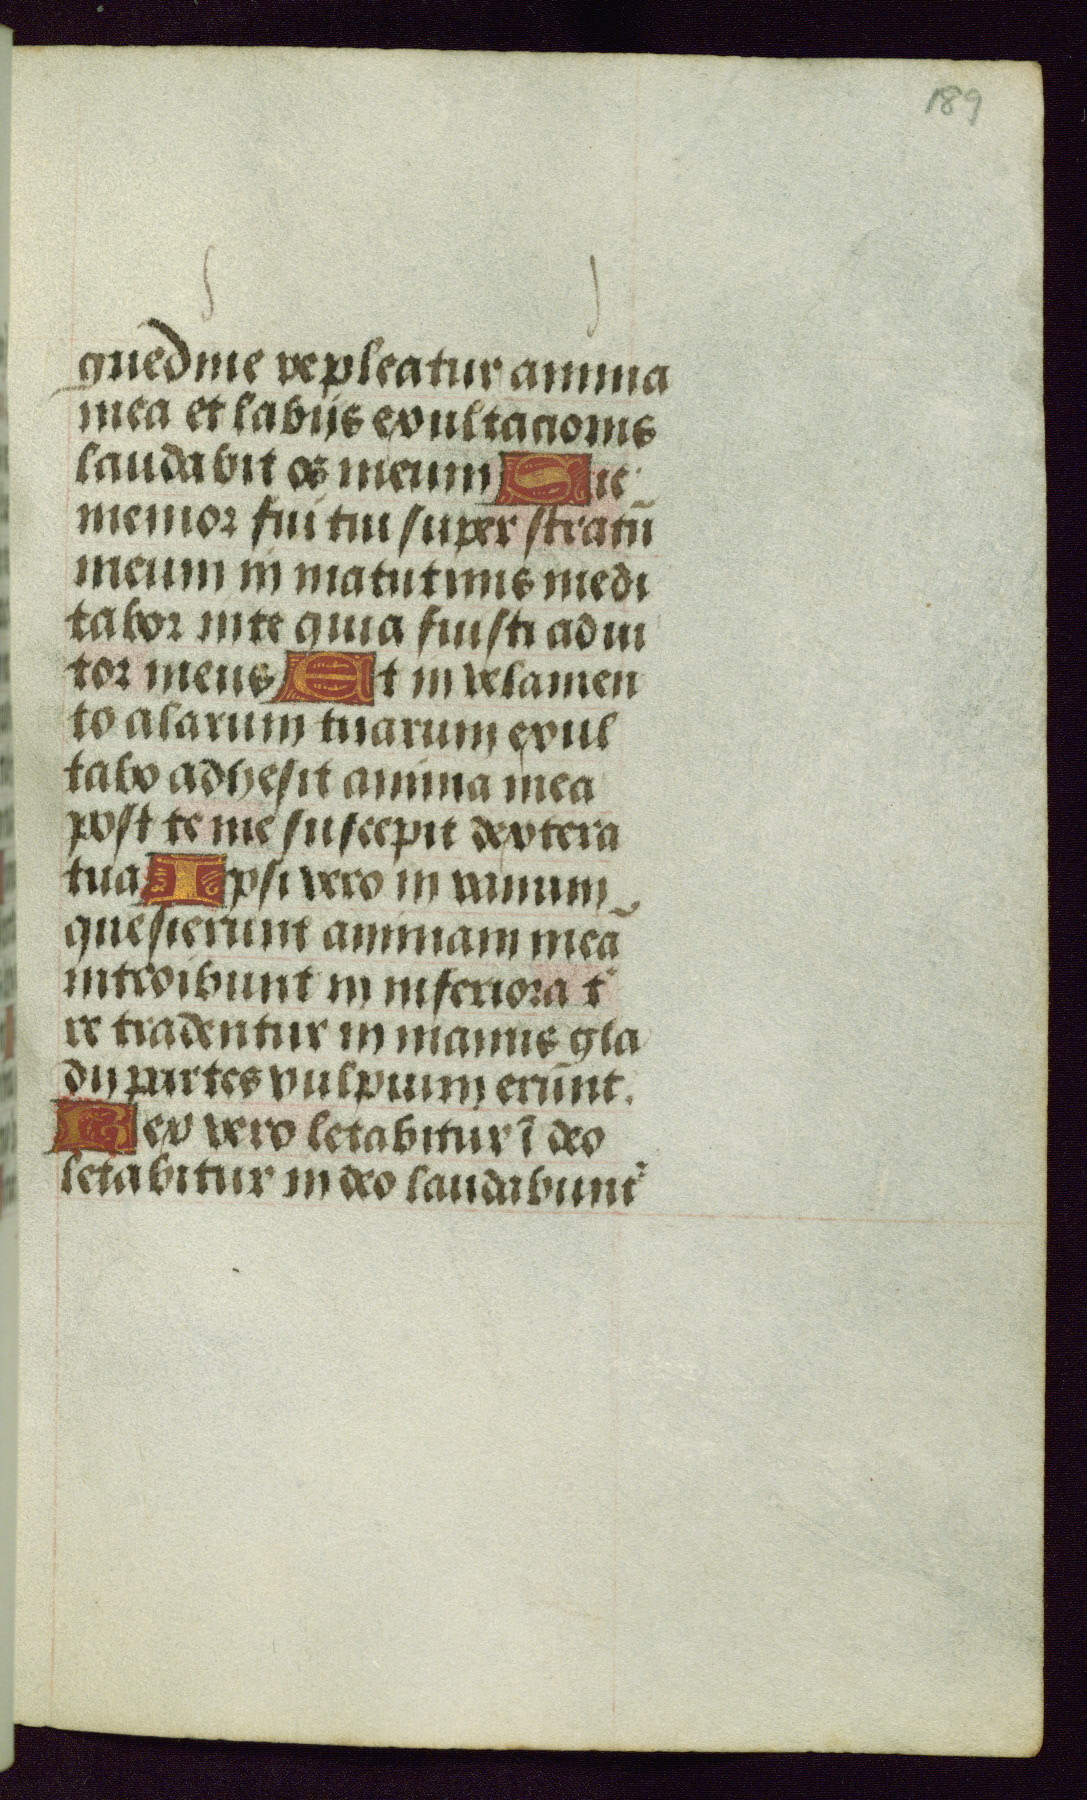 189
guedine repleatur anima
mea et labijs exultacionis
laudabit os meum Sic
memor fui tui super stratū
meum in matutinis medi
tabor in te quia fuisti adiu
tor meus Et in velamen
to alarum tuarum exul
tabo adhesit anima mea
post te me suscepit dextera
tua Ipsi vero in vanum
quesierunt animam meā
introibunt in inferiora t'
re tradentur in manus gla
dij partes vulpium erūnt.
Rex vero letabitur ī deo
letabitur in deo laudabunt'